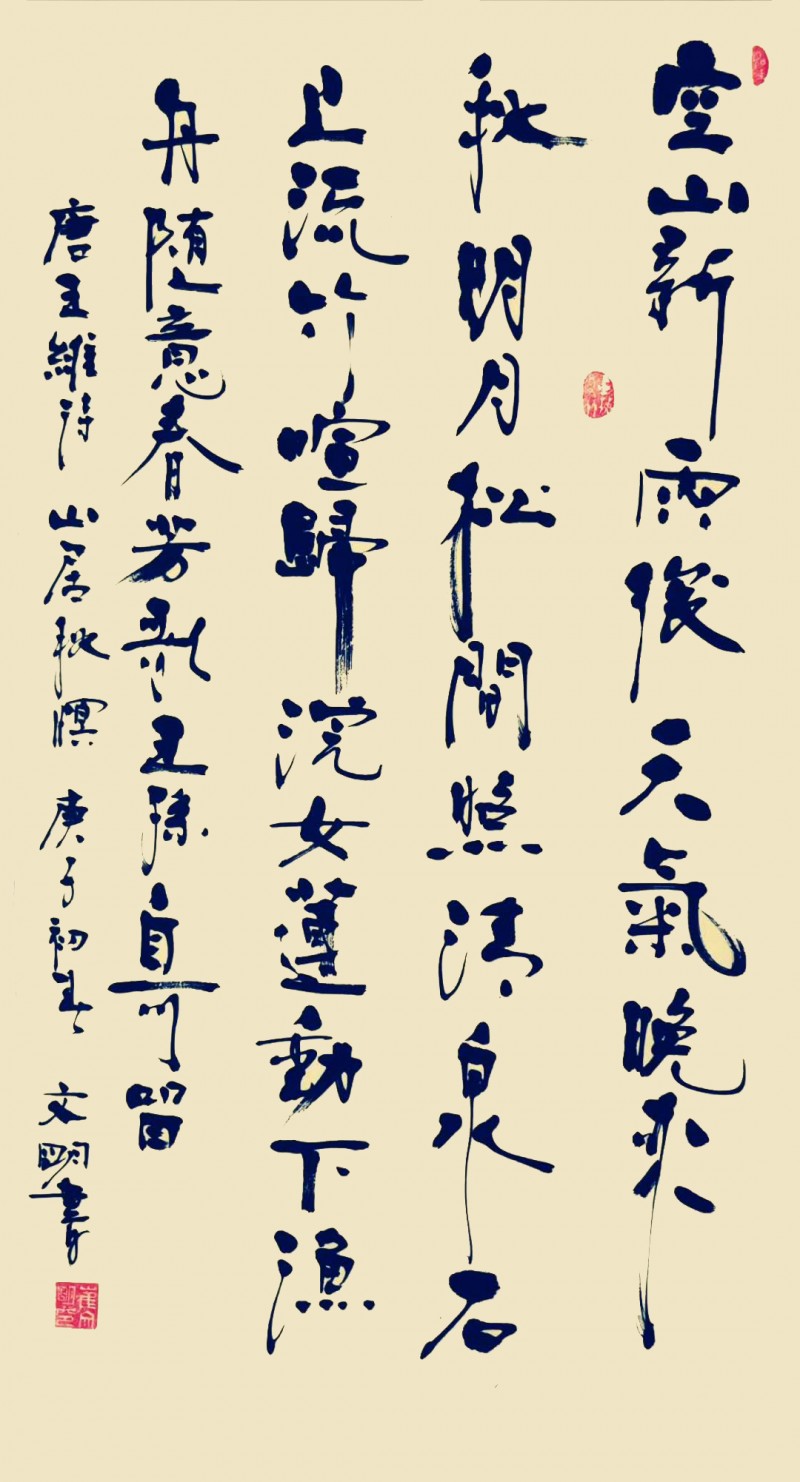 空山新雨後天氣晚來
秋明月松間照清泉石
上流竹喧歸浣女蓮動下漁
舟隨意春芳歇王孫自可留
唐王維詩山居秋暝庚子初春文明書